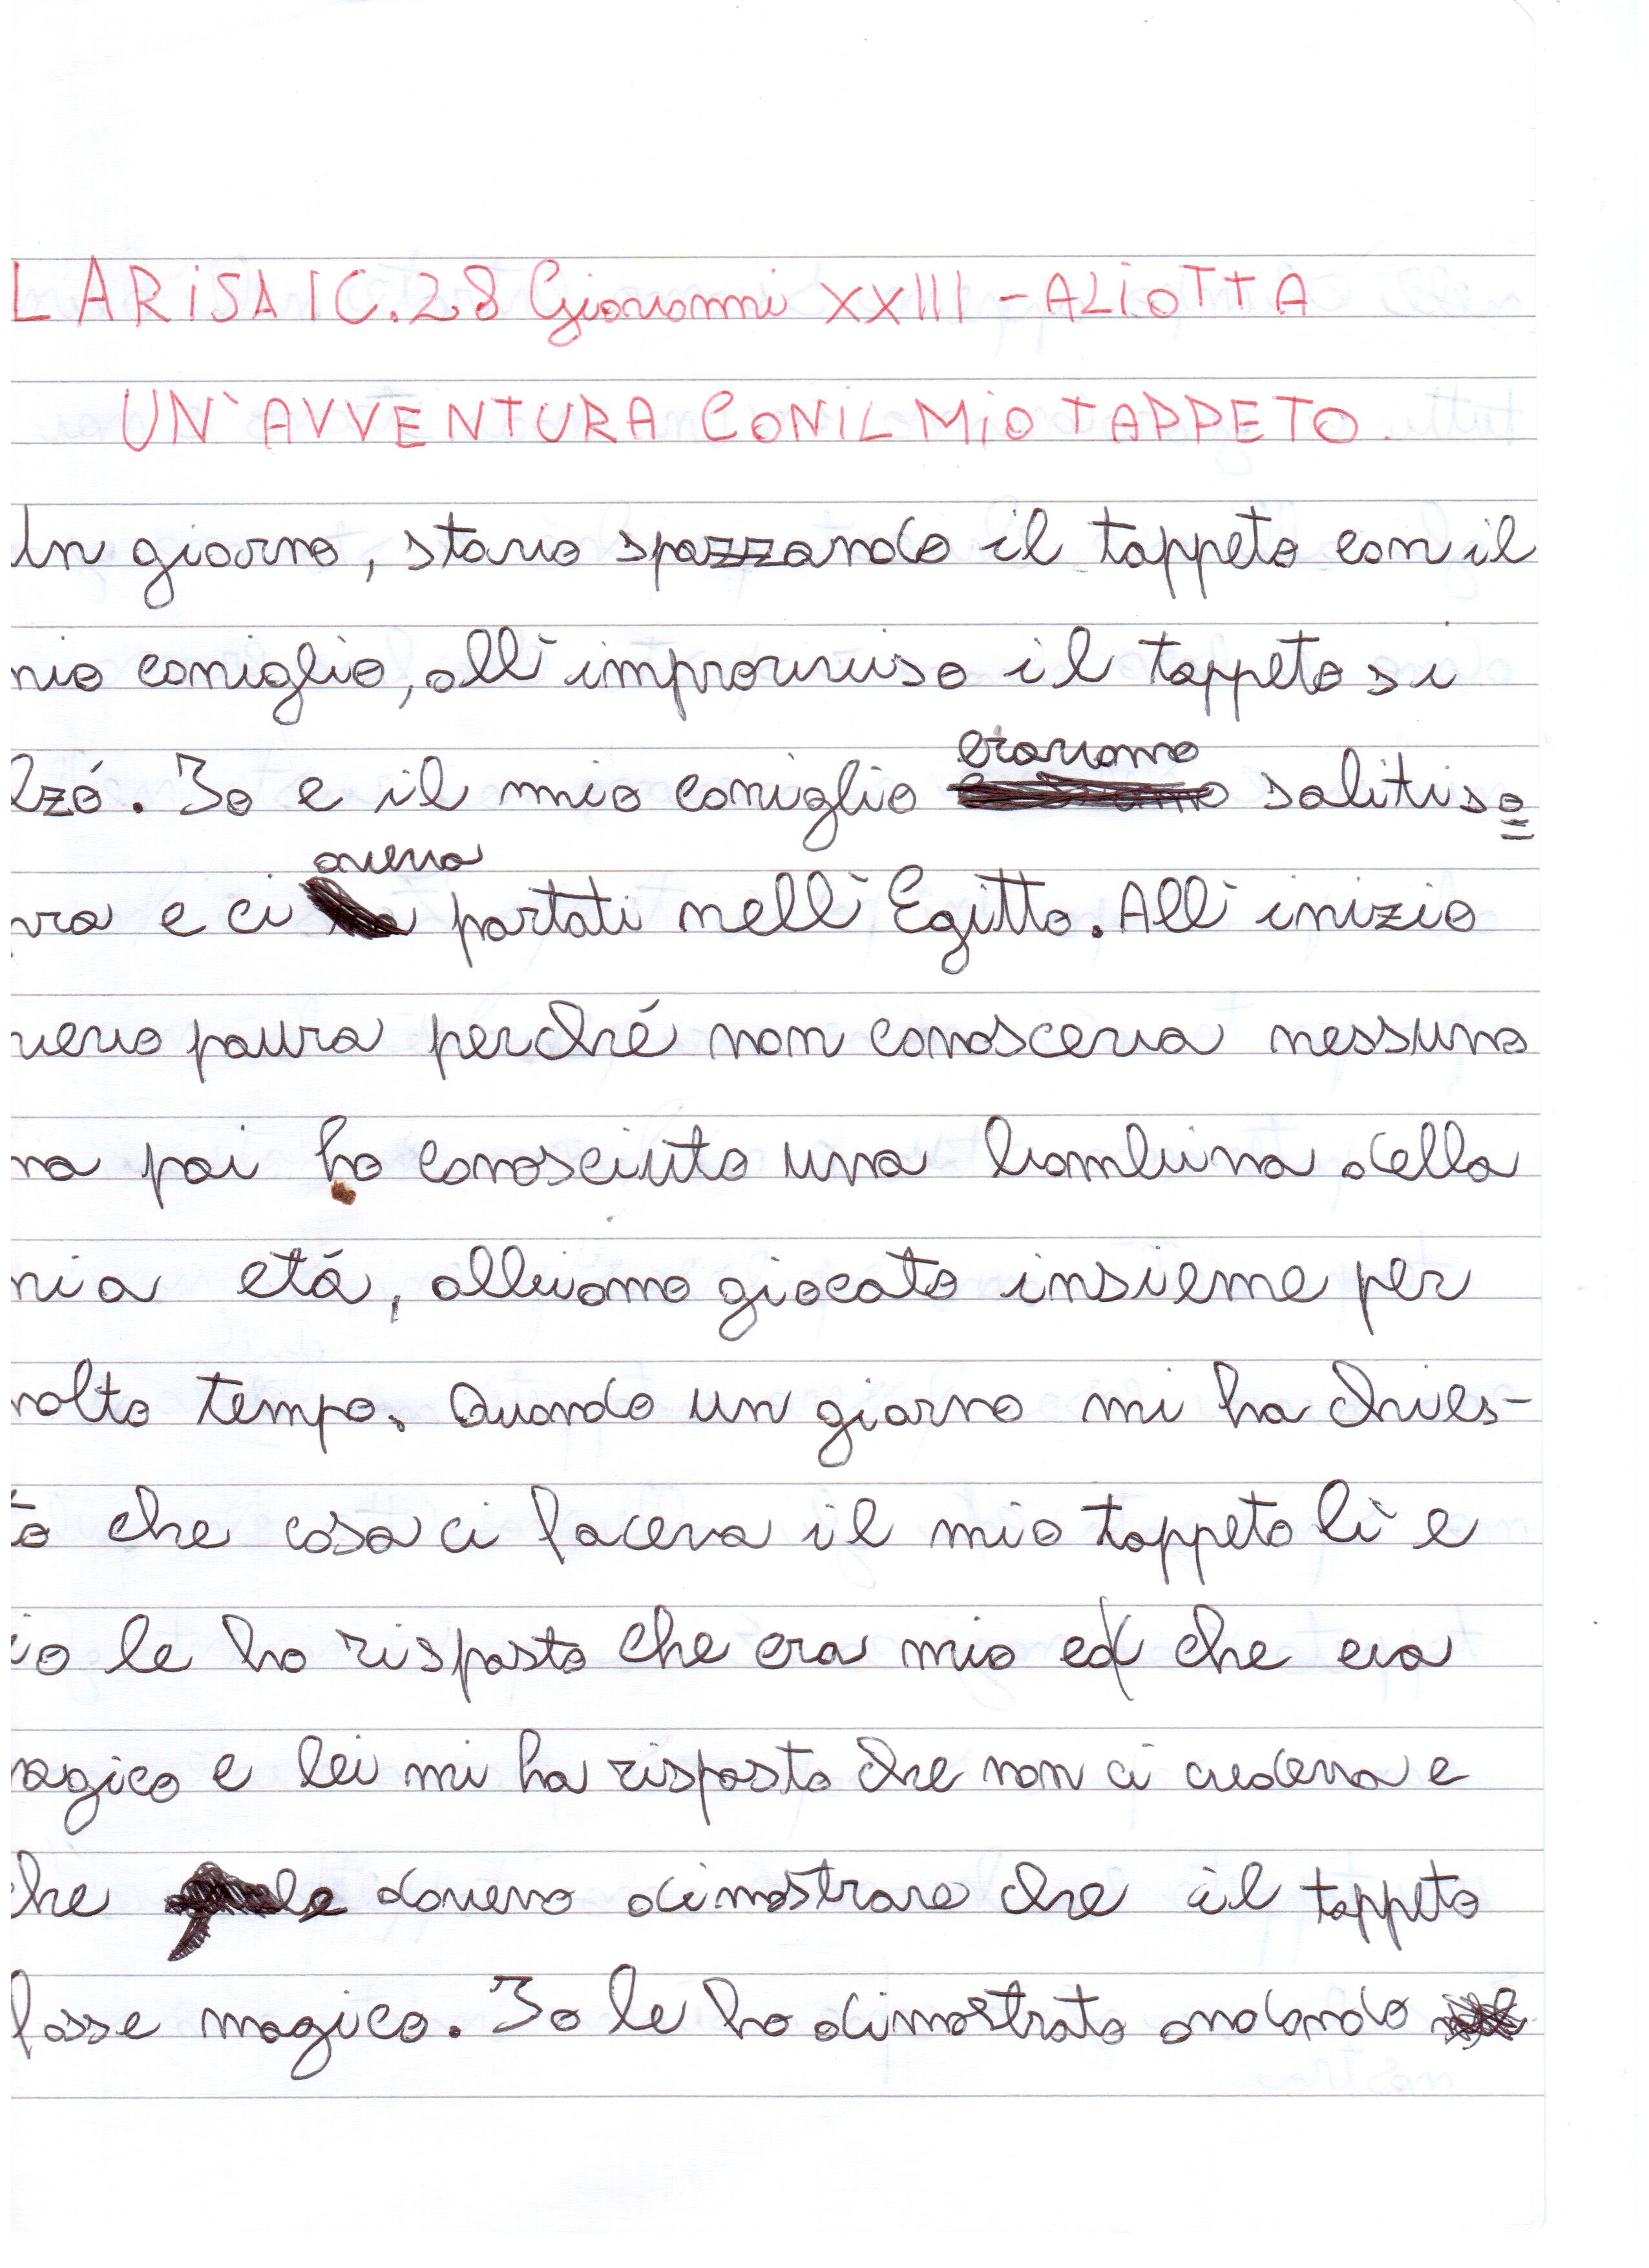 LARiSA IC. 28 Giovanni XXIII - ALiOTTA
UN'AVVENTURA CON IL MiO TAPPETO.
Un giorno, stavo spazzando il tappeto con il
mio coniglio, all'improvviso il tappeto si
alzó. Io e il mio coniglio eravamo saliti so
pra e ci aveva portati nell'Egitto. All'inizio
avevo paura perché non conosceva nessuno
ma poi ho conosciuto una bambina della
mia etá, abbiamo giocato insieme per
molto tempo. Quando un giorno mi ha chies-
to che cosa ci faceva il mio tappeto lì e
io le ho risposto che era mio e che era
magico e lei mi ha risposto che non ci credeva e
che dovevo dimostrare che il tappeto
fosse magico. Io le ho dimostrato andando